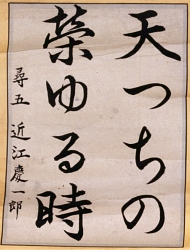 天つちの
榮ゆる時
尋五 近江慶一郎